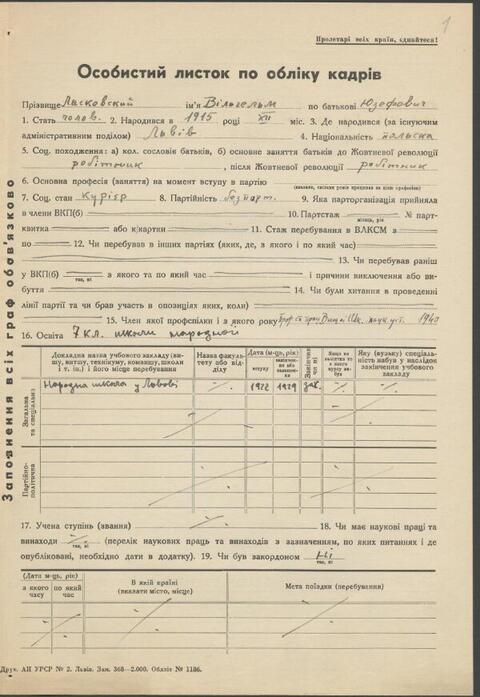 1
Пролетарі всіх країн, єднайтеся!
Особистий листок по обліку кадрів
Прізвище Ласковский ім'я Вільгельм по батькові Юзефович
1. Стать чолов. 2. Народився в 1915 році XII міс. 3. Де народився (за існуючим
адміністративним поділом) Львів 4. Національність польска
5. Соц. походження: а) кол. сословіє батьків, б) основне заняття батьків до Жовтневої революції
робітник, після Жовтневої революції робітник
6. Основна професія (заняття) на момент вступу в партію
(вказати, скільки років працював на цією професією)
7. Соц. стан Кур'єр 8. Партійність безпарт. 9. Яка парторганізація прийняла
в члени ВКП(б) 10. Партстаж № парт-
місяць, рік
квитка або к/картки 11. Стаж перебування в ВЛКСМ з
по 12. Чи перебував в інших партіях (яких, де, з якого і по який час)
13. Чи перебував раніш
у ВКП(б) з якого та по який час і причини виключення або ви-
так, ні
буття 14. Чи були хитання в проведенні
лінії партії та чи брав участь в опозиціях яких, коли)
15. Член якої профспілки і з якого року 1940
16. Освіта 7 кл. школи народної
Докладна назва учбового закладу (ви-
шу, витшу, технікуму, комвишу, школи
і т. ін.) і його місце перебування
Назва факуль-
тету або від-
ділу
Дата (м-ць, рік)
вступу
закінчен-
ня або
вибуття
Закінчив
чи ні
Якщо не
закінчив то
з якого
курсу ви-
був
Яку (вузьку) спеціаль-
ність набув у наслідок
закінчення учбового
закладу
Загальна
та спеціальна
Народна школа у Львові 1922 1929 зак.
Партійно-
політична
17. Учена ступінь (звання) 18. Чи має наукові праці та
винаходи (перелік наукових праць та винаходів з зазначенням, по яких питаннях і де
так, ні
опубліковані, необхідно дати в додатку). 19. Чи був закордоном ні
так, ні
(Дата м-ць, рік)
з якого
часу
по який
час
В якій країні
(вказати місто, місце)
Мета поїздки (перебування)
Друк. АН УРСР № 2. Львів. Зам. 368—2.000. Обліт № 1186.
Заповнення всіх граф обов'язково